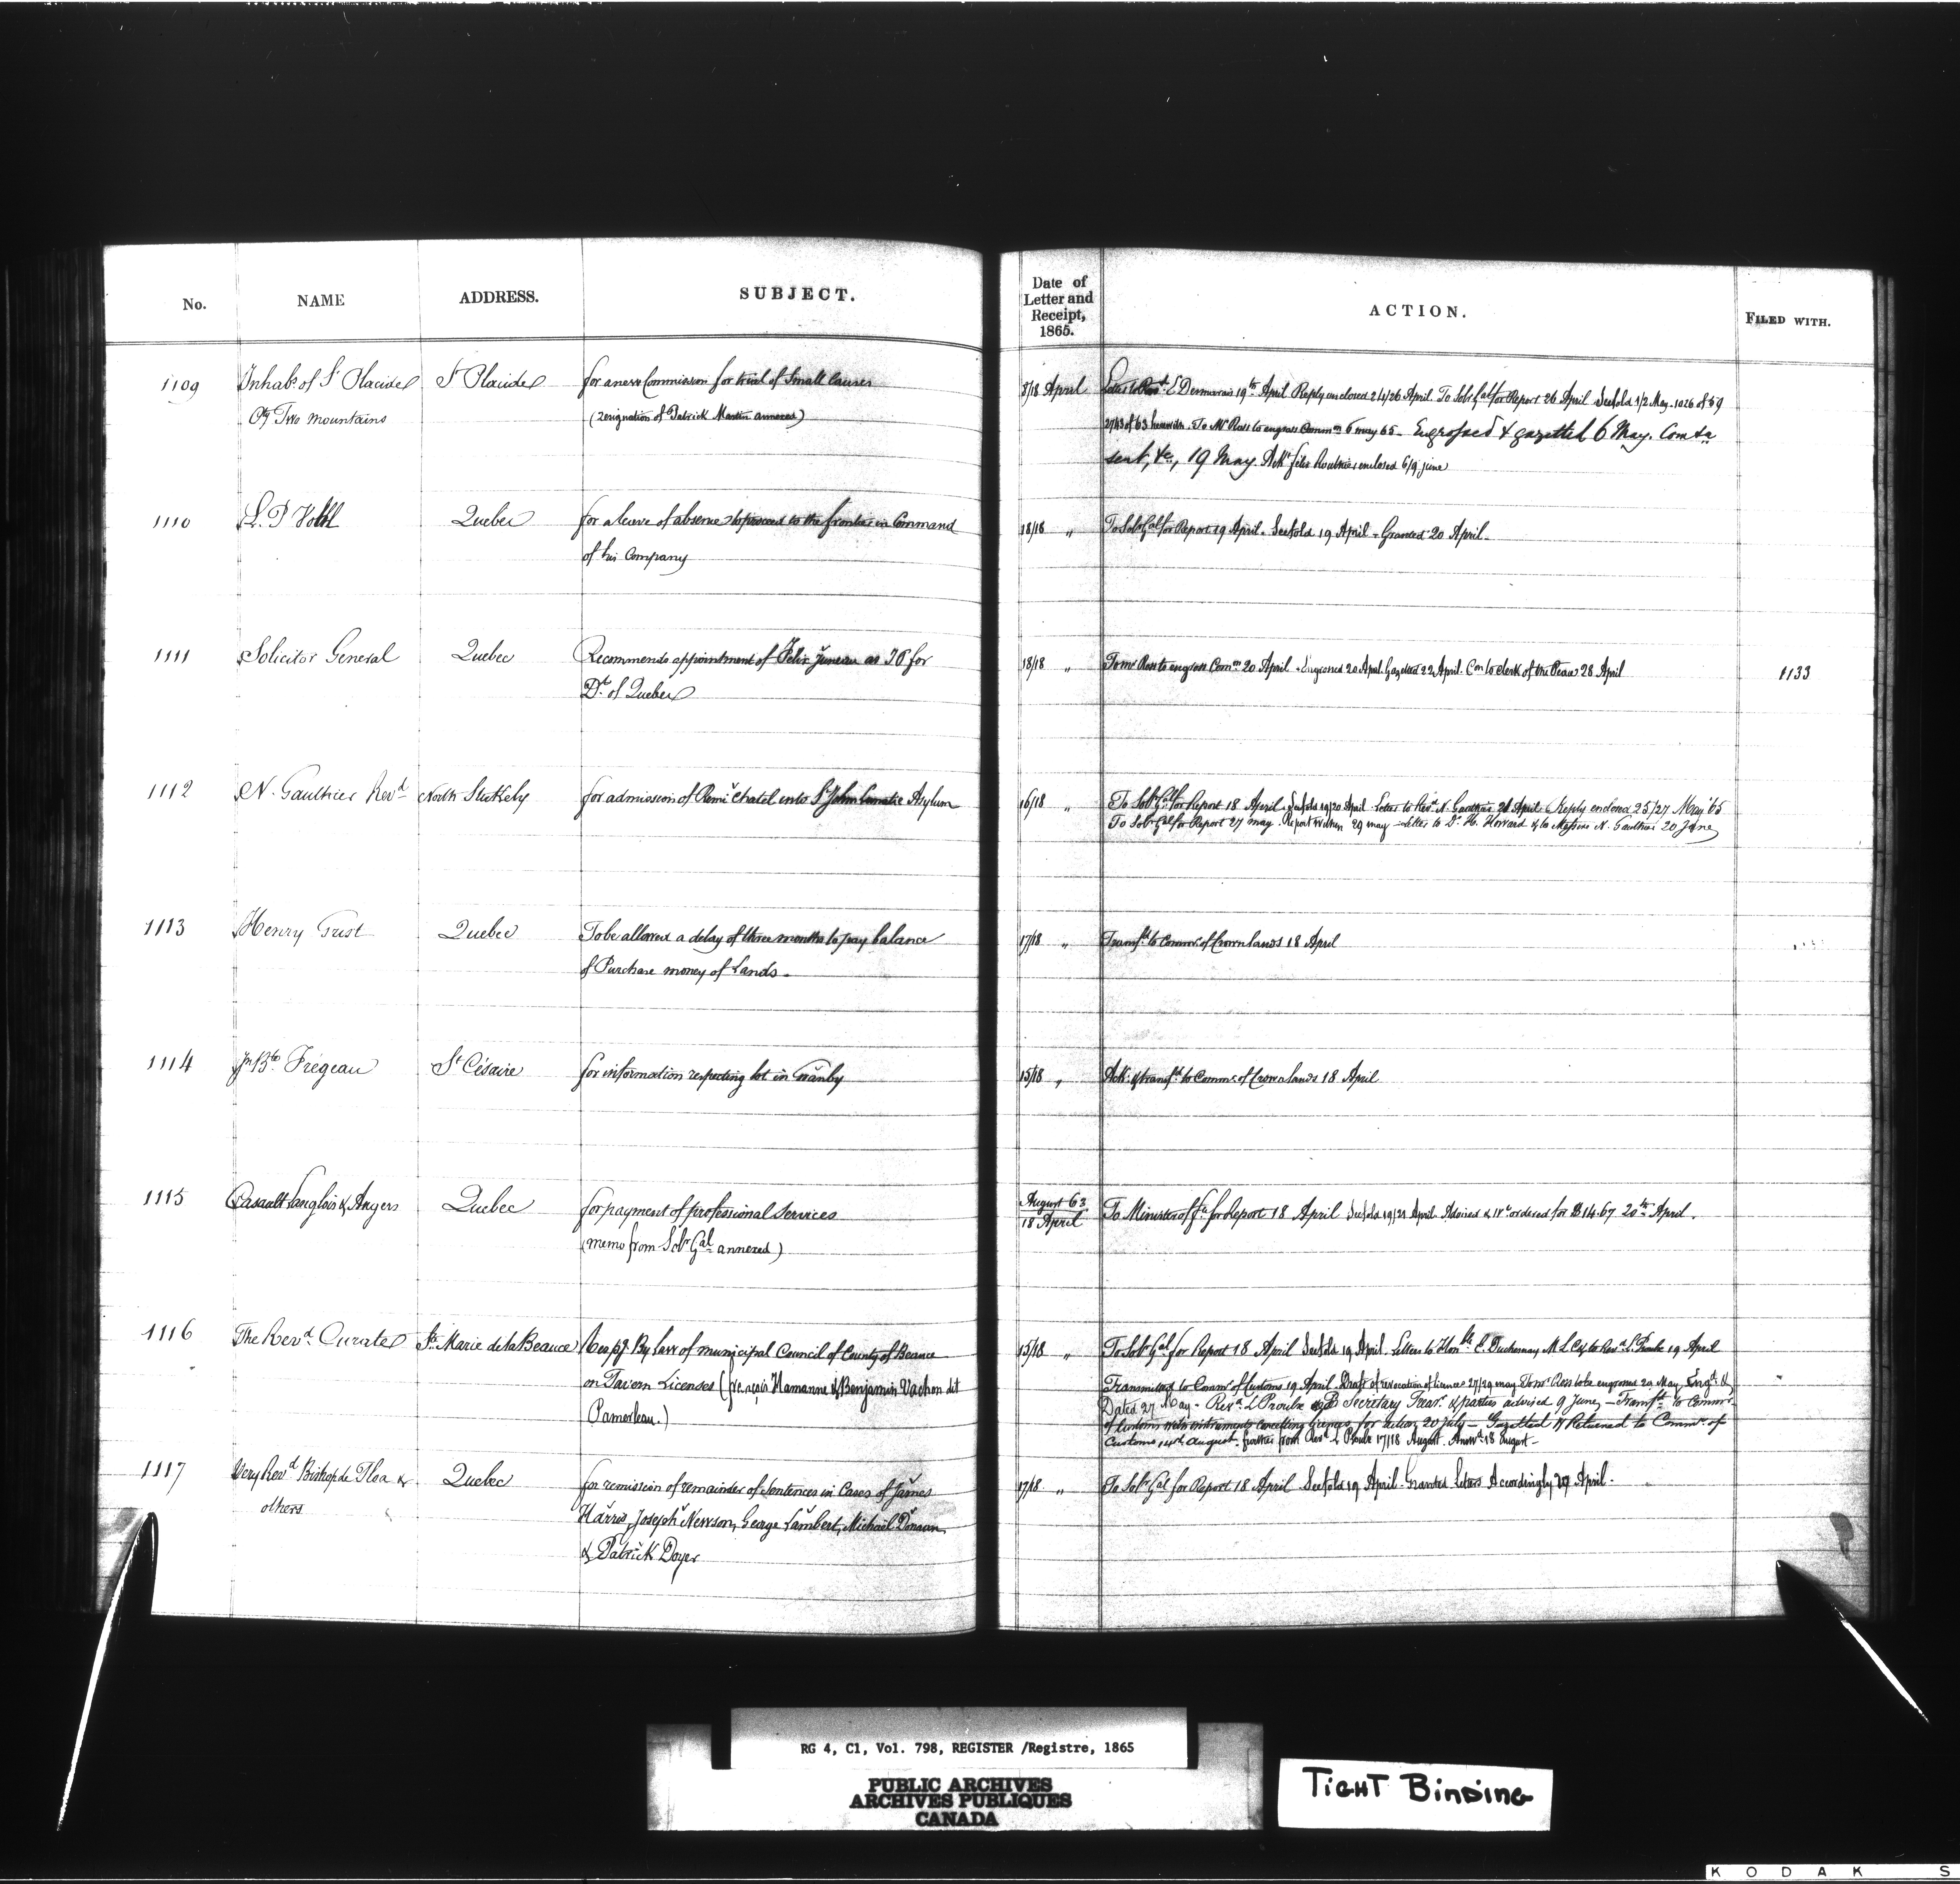 No. NAME ADDRESS. SUBJECT. Date of Letter and Receipt, 1865. ACTION. FILED WITH.
1109 Inhabs. of St Placide St Placide for a new Commission for trial of Small Causes 8/18 April Letter to Revd. E Desmarais 19th April Reply enclosed 24/26 April To Solr Gal for Report 26 April See fold 1/2 May. 1026 of 59
Cty Two Mountains (resignation of Patrick Martin annexed) 2743 of 63 herewith. To Mr Ross to engross Commn 6 may 65 - Engrossed & gazetted 6 May. Comn &c
sent, &c., 19 May. Ackt felix Routhier enclosed 6/9 june
1110 L. P Vohl Quebec for a leave of absence to proceed to the frontier in Command 18/18 " To Solr Gal for Report 19 April. See fold 19 April - Granted 20 April.
of his Company
1111 Solicitor General Quebec Recommends appointment of Felix Juneau as JP for 18/18 " To Mr Ross to engross Comn 20 April - Engrossed 20 April. Gazetted 22 April. Cn to Clerk of the Peace 28 April 1133
Dt. of Quebec
1112 N. Gaulthier Revd North Stukely for admission of Remi Chatel into St John Lunatic Asylum 16/18 " To Solr Gal for Report 18 April. See fold 19/20 April - Letter to Revd. N. Gaulthier 21 April. Reply enclosed 25/27 May '65
To Solr Gal for Report 27 may. Report within 29 may - Letter to Dr. H. Howard & to Messire N. Gaulthier 20 June
1113 Henry Trist Quebec To be allowed a delay of three months to pay balance 17/18 " Transfd. to Commr. of Crown Lands 18 April
of Purchase money of Lands -
1114 Jn Bte Frégeau St Césaire for information respecting lot in Granby 15/18 " Ack. & transfd. to Commr. of Crown lands 18 April
1115 Casault Langlois & Angers Quebec for payment of professional Services August 63 / 18 April To Minister of Fce for Report 18 April See fold 19/21 April Advised & Wt ordered for $14.67 20th April.
(memo from Solr Gal annexed)
1116 The Revd. Curate Ste Marie de la Beauce Respg. By law of municipal Council of County of Beauce 15/18 " To Solr Gal for Report 18 April See fold 19 April. Letters to Honble E. Duchesnay M L C & to Revd L. Proulx 19 April
on Tavern Licenses (françois Hamanne & Benjamin Vachon dit Transmitted to Commr. of Customs 19 April. Draft of revocation of licence 27/29 may To Mr Ross to be engrossed 29 May. Engd. &
Pamerleau.) Dated 27 May - Revd. L Proulx & Secretary Treasr. & parties advised 9 June - Transfd. to Commr.
of Customs with instruments cancelling licenses for action 20 July - Gazetted & Returned to Commr. of
Customs 14th August. further from Revd. L Proulx 17/18 August. Answd 18 August -
1117 Very Revd Bishop de Tloa & Quebec for remission of remainder of Sentences in Cases of James 17/18 " To Solr Gal for Report 18 April See fold 19 April - Granted Letters Accordingly 20 April.
others Harris, Joseph Newson, George Lambert, Michael Donovan
& Patrick Doyer
RG 4, C1, Vol. 798, REGISTER /Registre, 1865
PUBLIC ARCHIVES
ARCHIVES PUBLIQUES
CANADA
TIGHT BINDING
KODAK S